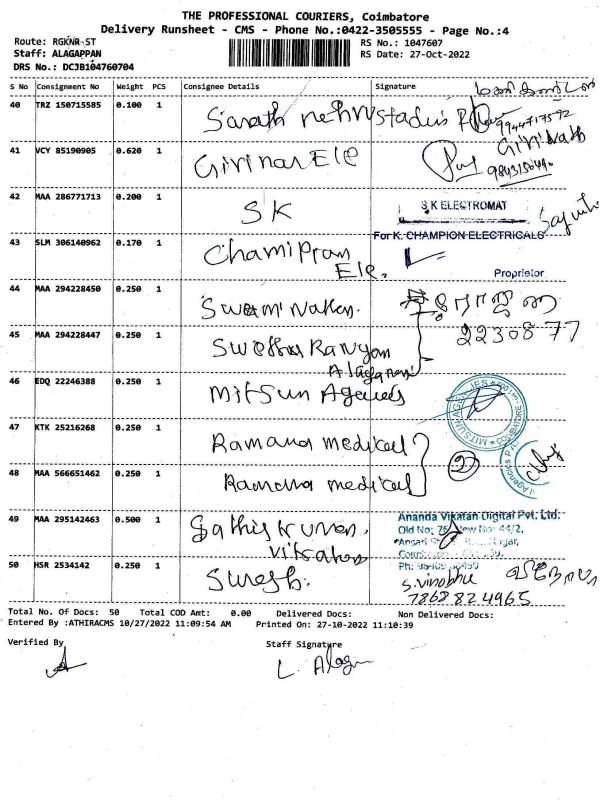 THE PROFESSIONAL COURIERS, Coimbatore
Delivery Runsheet - CMS - Phone No.:0422-3505555 - Page No.:4
Route: RGKNR-ST
RS No.: 1047607
Staff: ALAGAPPAN
RS Date: 27-Oct-2022
DRS No.: DCJB104760704
S No Consignment No Weight PCS Consignee Details Signature
40 TRZ 150715585 0.100 1 Sarath nehru stadium
9944717572
41 VCY 85190905 0.620 1 Girinar Ele
Giri Nath
42 MAA 286771713 0.200 1 SK S.K ELECTROMAT
43 SLM 306140962 0.170 1 Chamipran Ele. For K. CHAMPION ELECTRICALS
Proprietor
44 MAA 294228450 0.250 1 Swaminathan.
2230877
45 MAA 294228447 0.250 1
46 EDQ 22246388 0.250 1 Mitsun Agencies
47 KTK 25216268 0.250 1 Ramana medical
48 MAA 566651462 0.250 1 Ramana medical
49 MAA 295142463 0.500 1 Sathis kumar. Vikatan
Ananda Vikatan Digital Pvt. Ltd.
Old No: New No: 44/2,
50 HSR 2534142 0.250 1 Suresh.
S. Vinobhu
7868824965
Total No. Of Docs: 50 Total COD Amt: 0.00 Delivered Docs: Non Delivered Docs:
Entered By :ATHIRACMS 10/27/2022 11:09:54 AM Printed On: 27-10-2022 11:10:39
Verified By Staff Signature